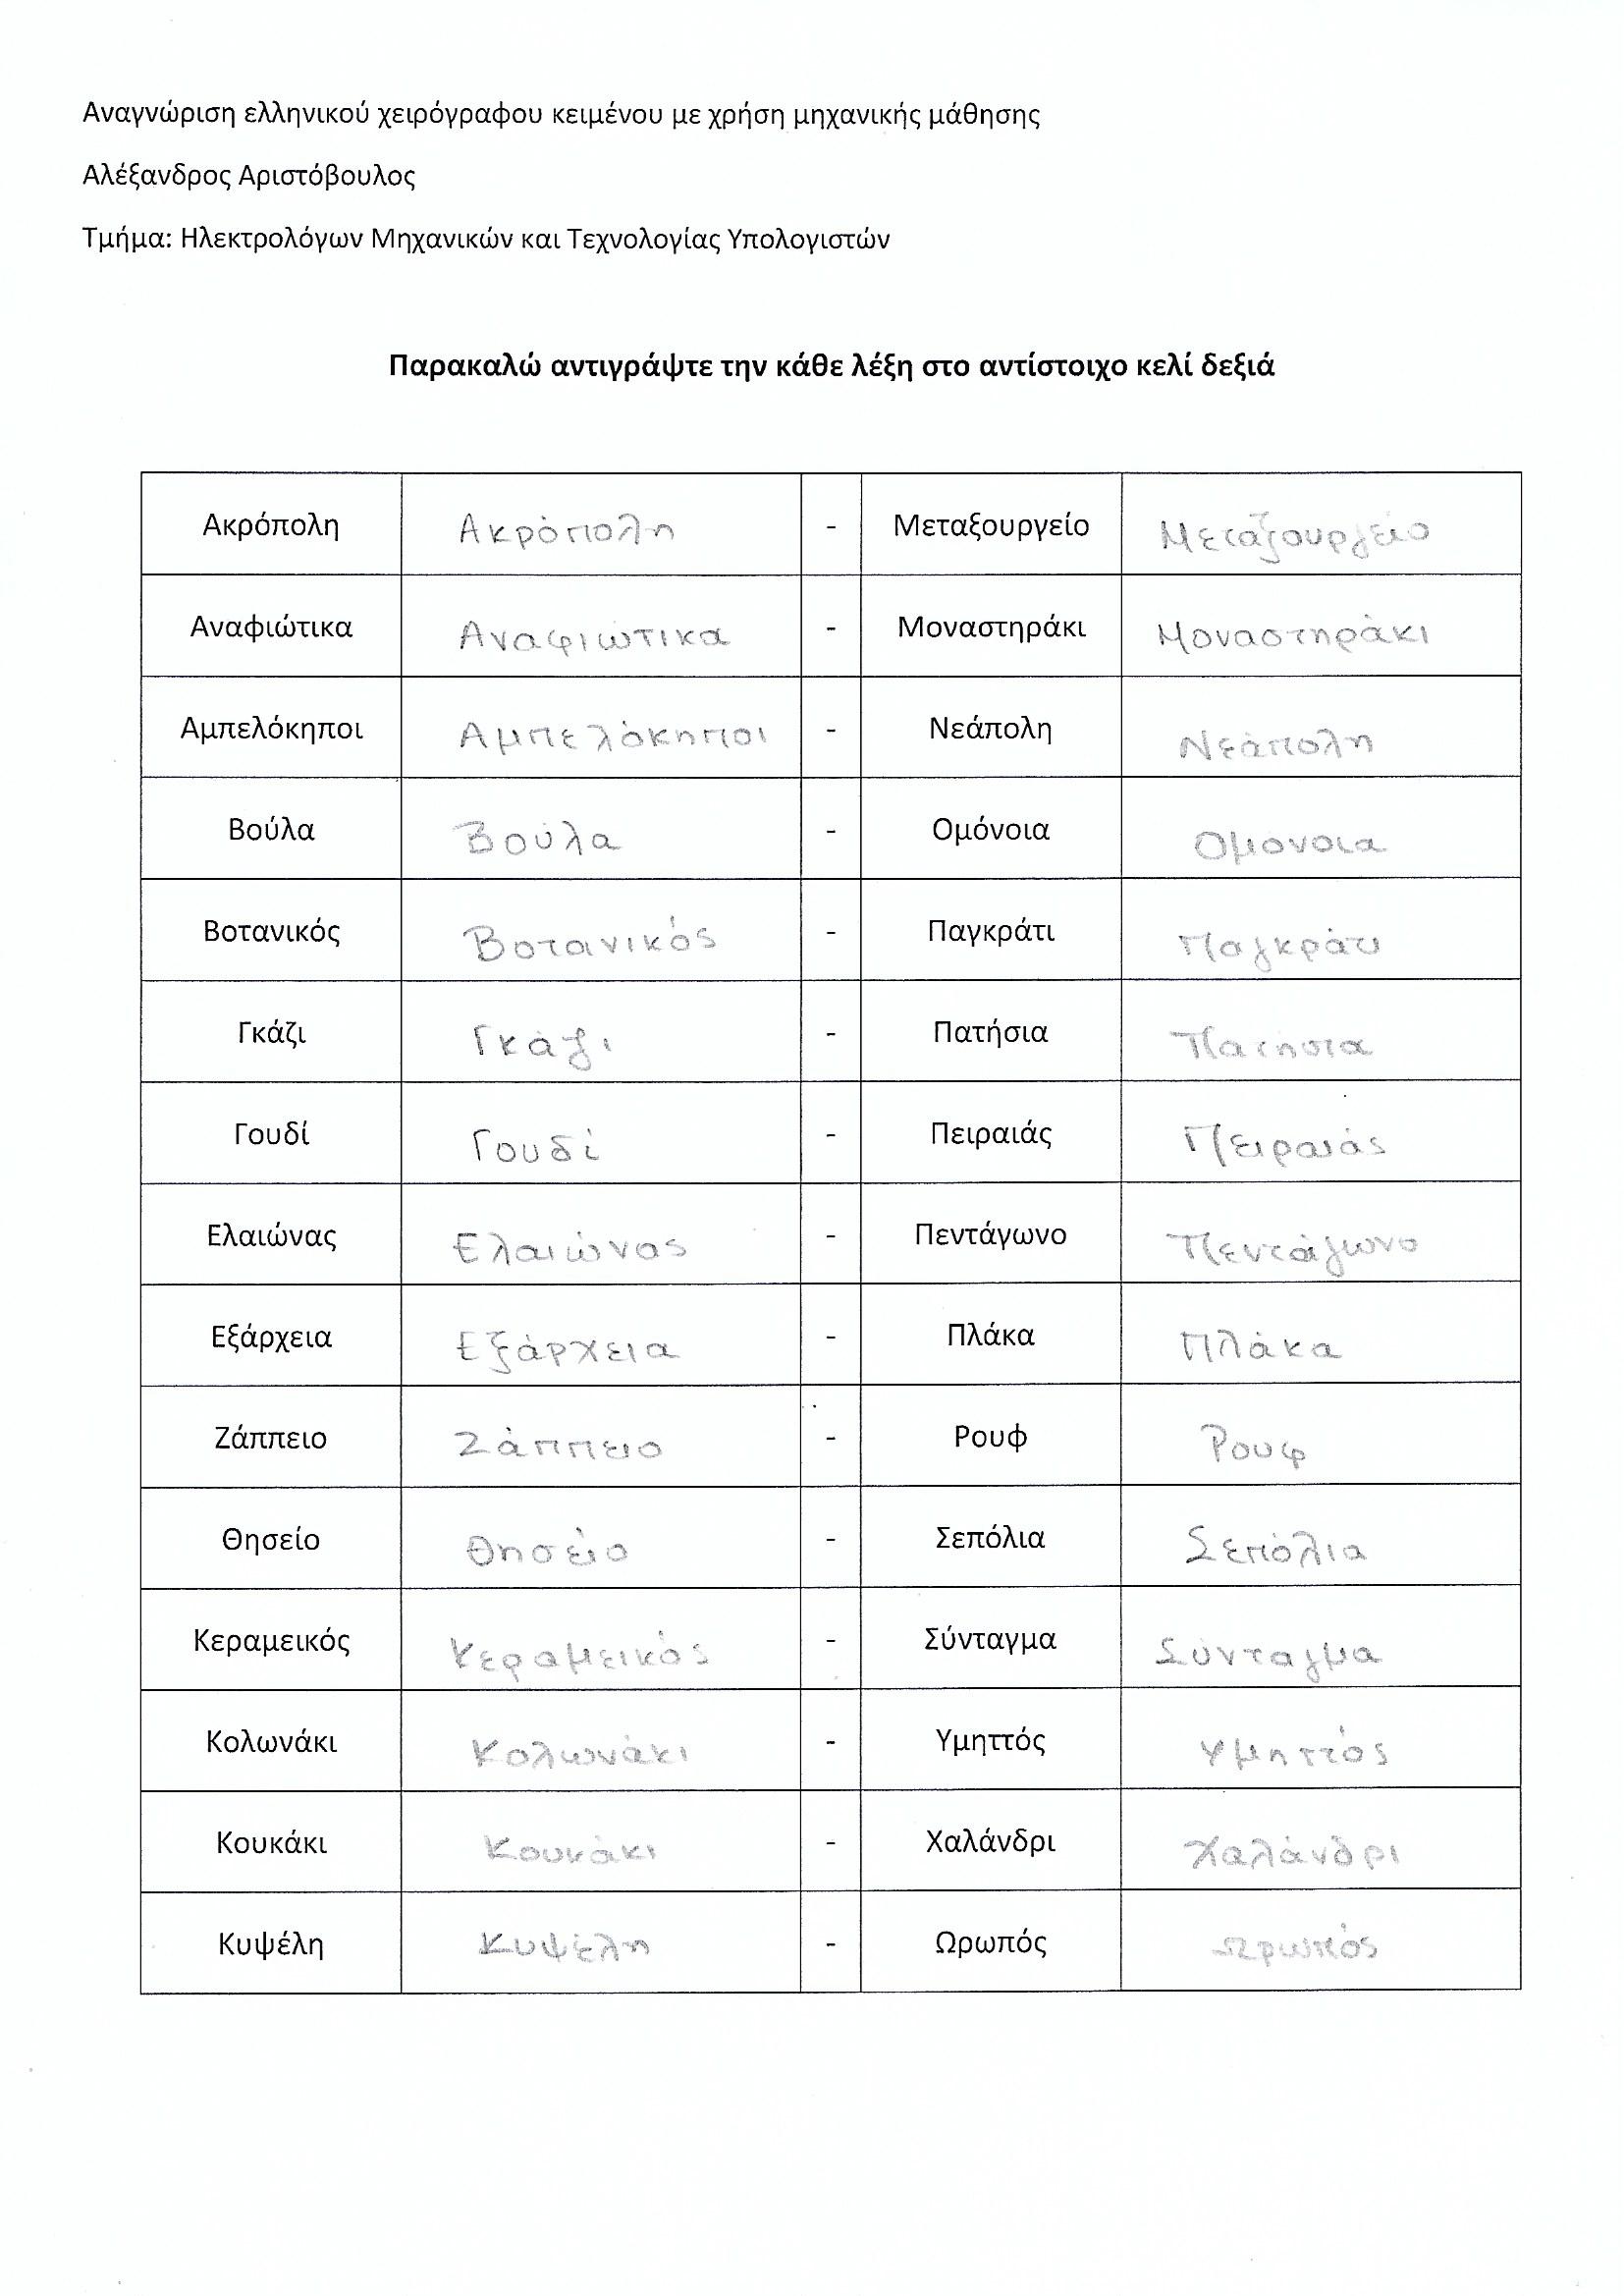 Αναγνώριση ελληνικού χειρόγραφου κειμένου με χρήση μηχανικής μάθησης
Αλέξανδρος Αριστόβουλος
Τμήμα: Ηλεκτρολόγων Μηχανικών και Τεχνολογίας Υπολογιστών
Παρακαλώ αντιγράψτε την κάθε λέξη στο αντίστοιχο κελί δεξιά
Ακρόπολη Ακρόπολη - Μεταξουργείο Μεταξουργείο
Αναφιώτικα Αναφιώτικα - Μοναστηράκι Μοναστηράκι
Αμπελόκηποι Αμπελόκηποι - Νεάπολη Νεάπολη
Βούλα Βούλα - Ομόνοια Ομονοια
Βοτανικός Βοτανικός - Παγκράτι Παγκράτι
Γκάζι Γκάζι - Πατήσια Πατήσια
Γουδί Γουδί - Πειραιάς Πειραιάς
Ελαιώνας Ελαιώνας - Πεντάγωνο Πεντάγωνο
Εξάρχεια Εξάρχεια - Πλάκα Πλάκα
Ζάππειο Ζάππειο - Ρουφ Ρουφ
Θησείο Θησείο - Σεπόλια Σεπόλια
Κεραμεικός Κεραμεικός - Σύνταγμα Σύνταγμα
Κολωνάκι Κολωνάκι - Υμηττός Υμηττός
Κουκάκι Κουκάκι - Χαλάνδρι Χαλάνδρι
Κυψέλη Κυψέλη - Ωρωπός Ωρωπός